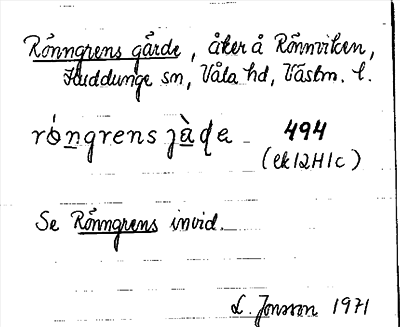 Rönngrens gärde, åker å Rönnviken,
Huddunge sn, Våla hd, Västm. l.
ró̱ngrens jà̱ḍe 494
(ek 12H1c)
Se Rönngrens invid.
L. Jonsson 1971